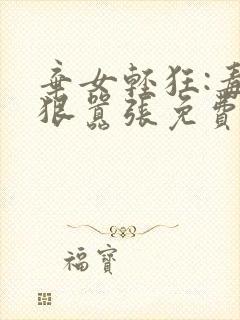 棄女輕狂:毒
狠囂張免費
福寶